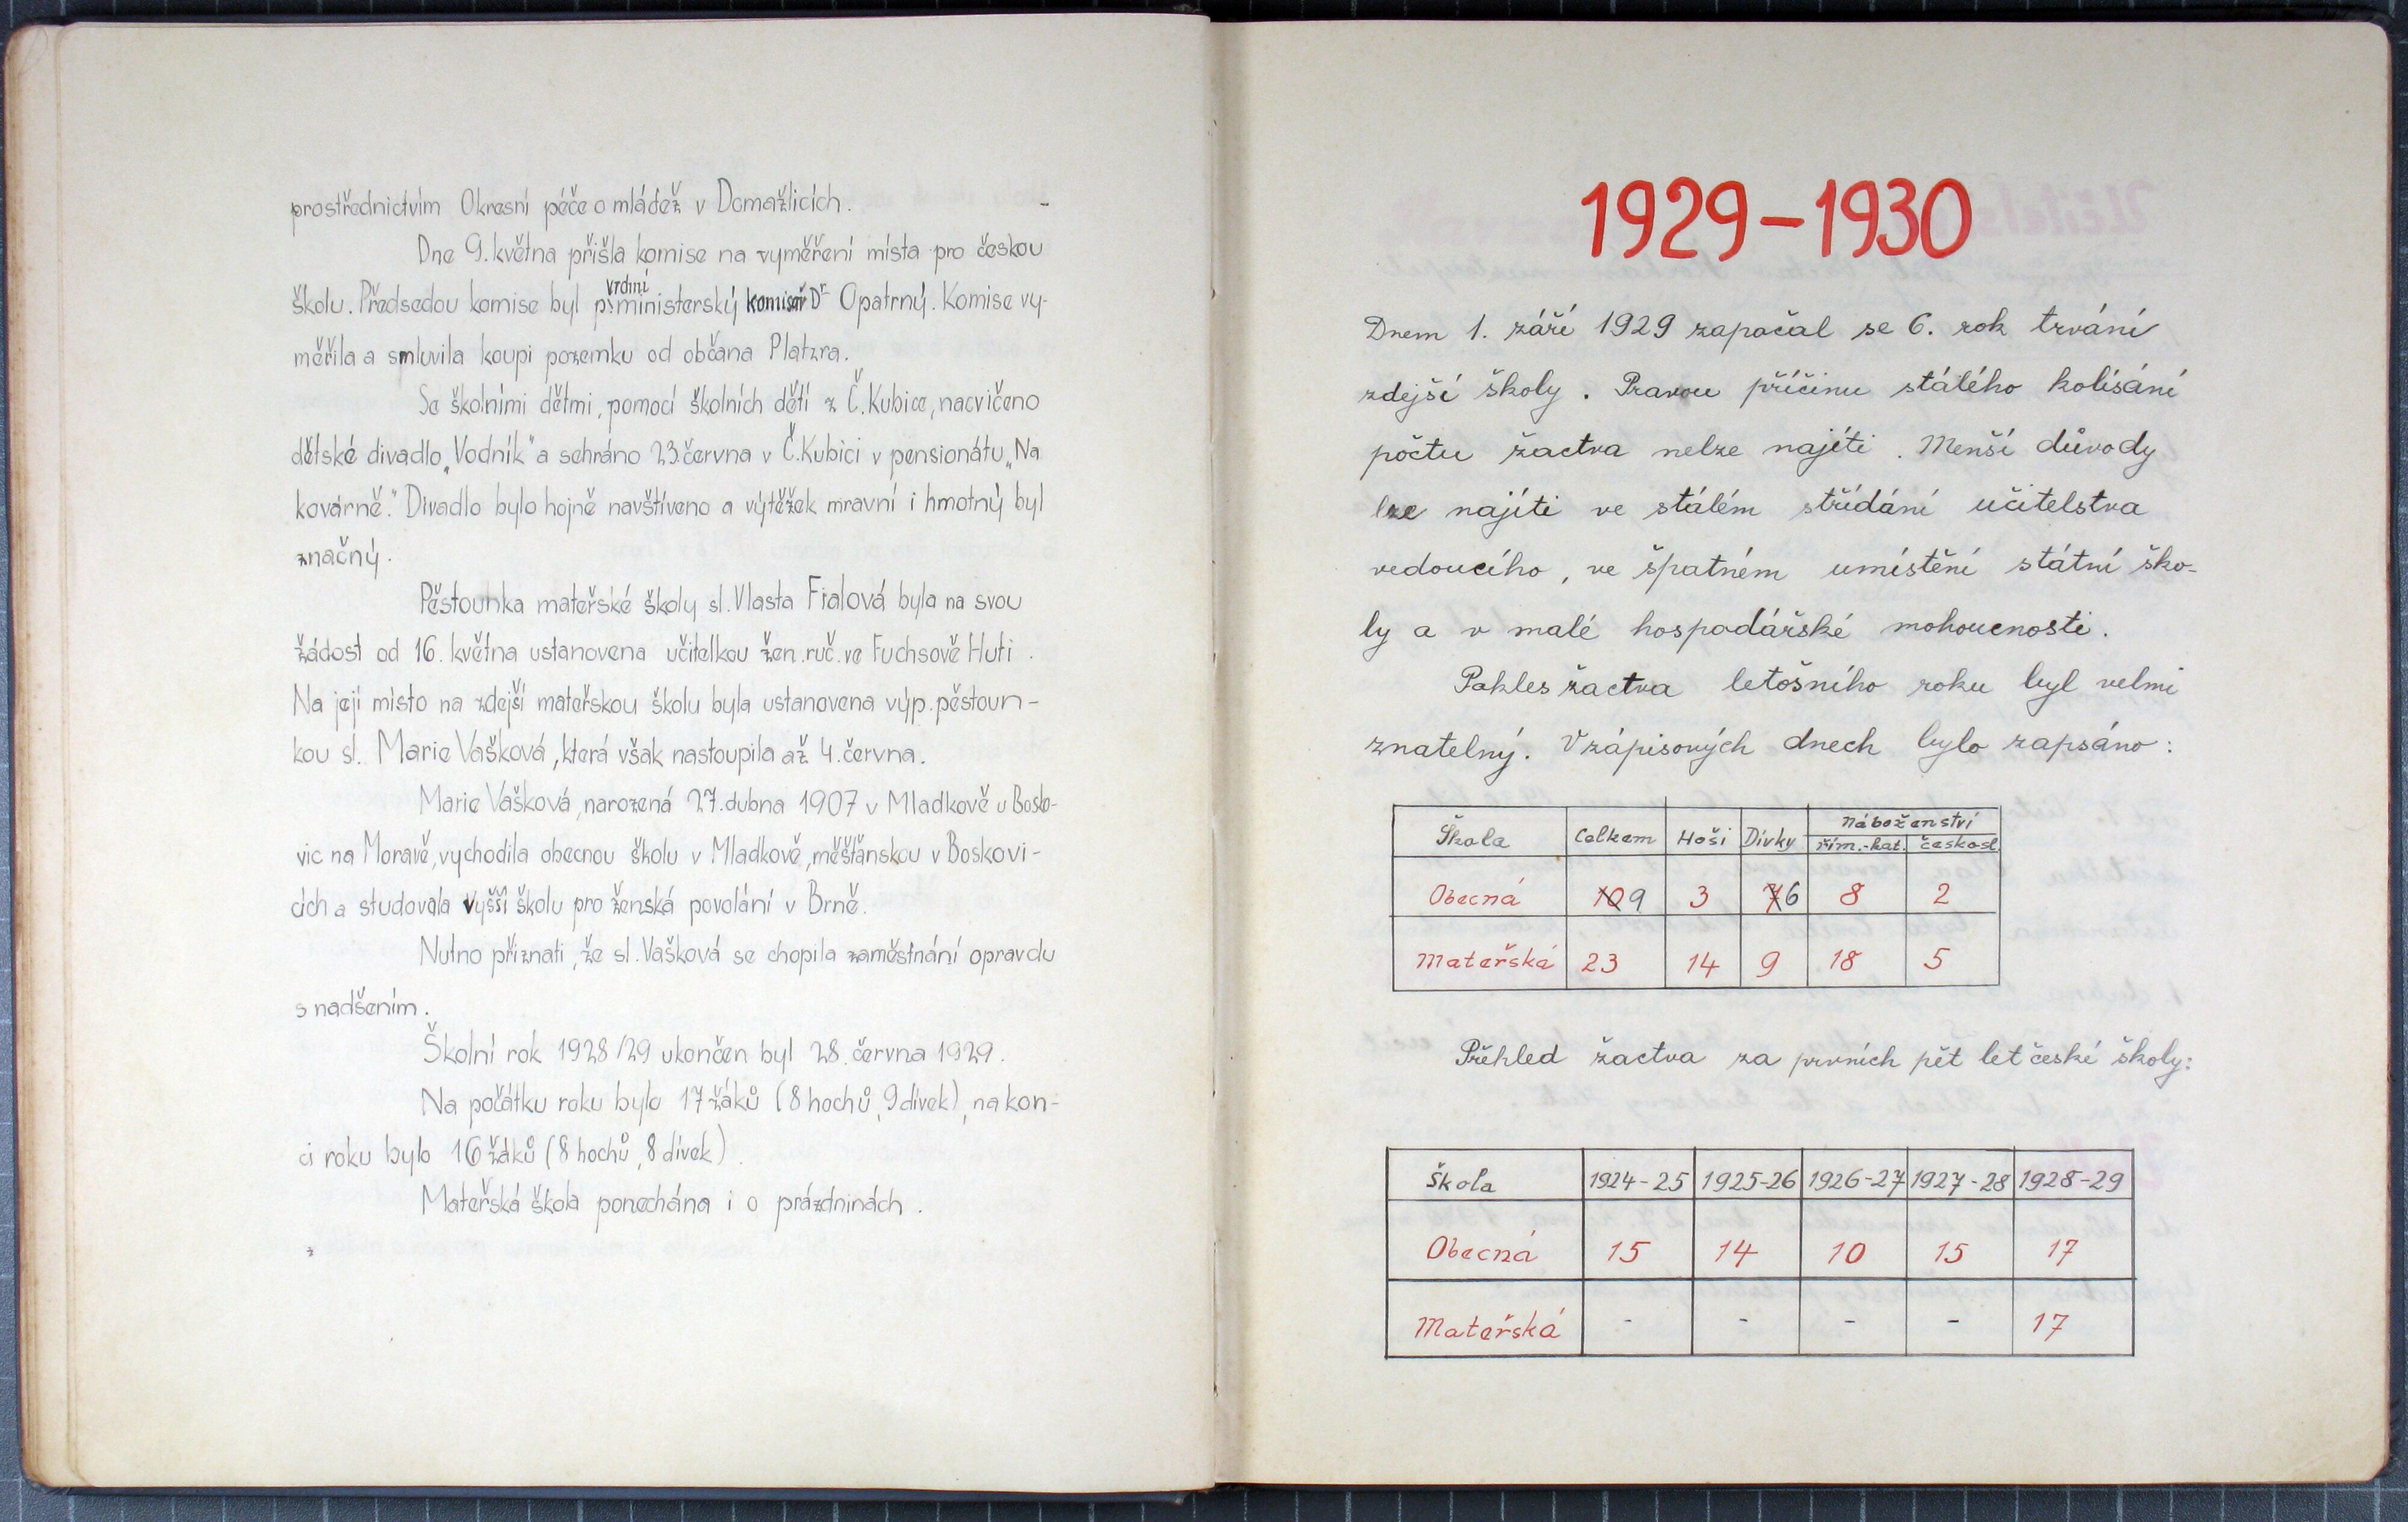 prostřednictvím Okresní péče o mládež v Domažlicích.
Dne 9. května přišla komise na vyměření místa pro českou
vrchní
školu. Předsedou komise byl p. ministerský komisař Dr Opatrný. Komise vy-
měřila a smluvila koupi pozemku od občana Platzra.
Se školními dětmi, pomocí školních dětí z Č. Kubice, nacvičeno
dětské divadlo „Vodník" a sehráno 23. června v Č. Kubici v pensionátu „Na
kovárně." Divadlo bylo hojně navštíveno a výtěžek mravní i hmotný byl
značný.
Pěstounka mateřské školy sl. Vlasta Fialová byla na svou
žádost od 16. května ustanovena učitelkou žen. ruč. ve Fuchsově Huti.
Na její místo na zdejší mateřskou školu byla ustanovena výp. pěstoun-
kou sl. Marie Vašková, která však nastoupila až 4. června.
Marie Vašková, narozená 27. dubna 1907 v Mladkově u Bosko-
vic na Moravě, vychodila obecnou školu v Mladkově, měšťanskou v Boskovi-
cích a studovala vyšší školu pro ženská povolání v Brně.
Nutno přiznati, že sl. Vašková se chopila zaměstnání opravdu
s nadšením.
Školní rok 1928/29 ukončen byl 28. června 1929.
Na počátku roku bylo 17 žáků (8 hochů, 9 dívek), na kon-
ci roku bylo 16 žáků (8 hochů, 8 dívek).
Mateřská škola ponechána i o prázdninách.
1929-1930
Dnem 1. září 1929 započal se 6. rok trvání
zdejší školy. Pravou příčinu stálého kolísání
počtu žactva nelze najíti. Menší důvody
lze najíti ve stálém střídání učitelstva
vedoucího, ve špatném umístění státní ško-
ly a v malé hospodářské mohoucnosti.
Pokles žactva letošního roku byl velmi
znatelný. V zápisových dnech bylo zapsáno:
Škola Celkem Hoši Dívky Náboženství
řím.-kat. českosl.
Obecná 10 9 3 7 6 8 2
Mateřská 23 14 9 18 5
Přehled žactva za prvních pět let české školy:
Škola 1924-25 1925-26 1926-27 1927-28 1928-29
Obecná 15 14 10 15 17
Mateřská - - - - 17